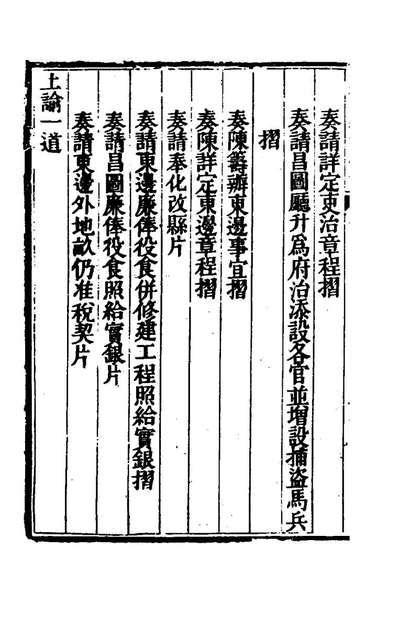 奏請詳定吏治章程摺
奏請昌圖廳升爲府治添設各官並增設捕盜馬兵
摺
奏陳籌辦東邊事宜摺
奏陳詳定東邊章程摺
奏請奉化改縣片
奏請東邊廉俸役食併修建工程照給實銀摺
奏請昌圖廉俸役食照給實銀片
奏請東邊外地畝仍准稅契片
上諭一道